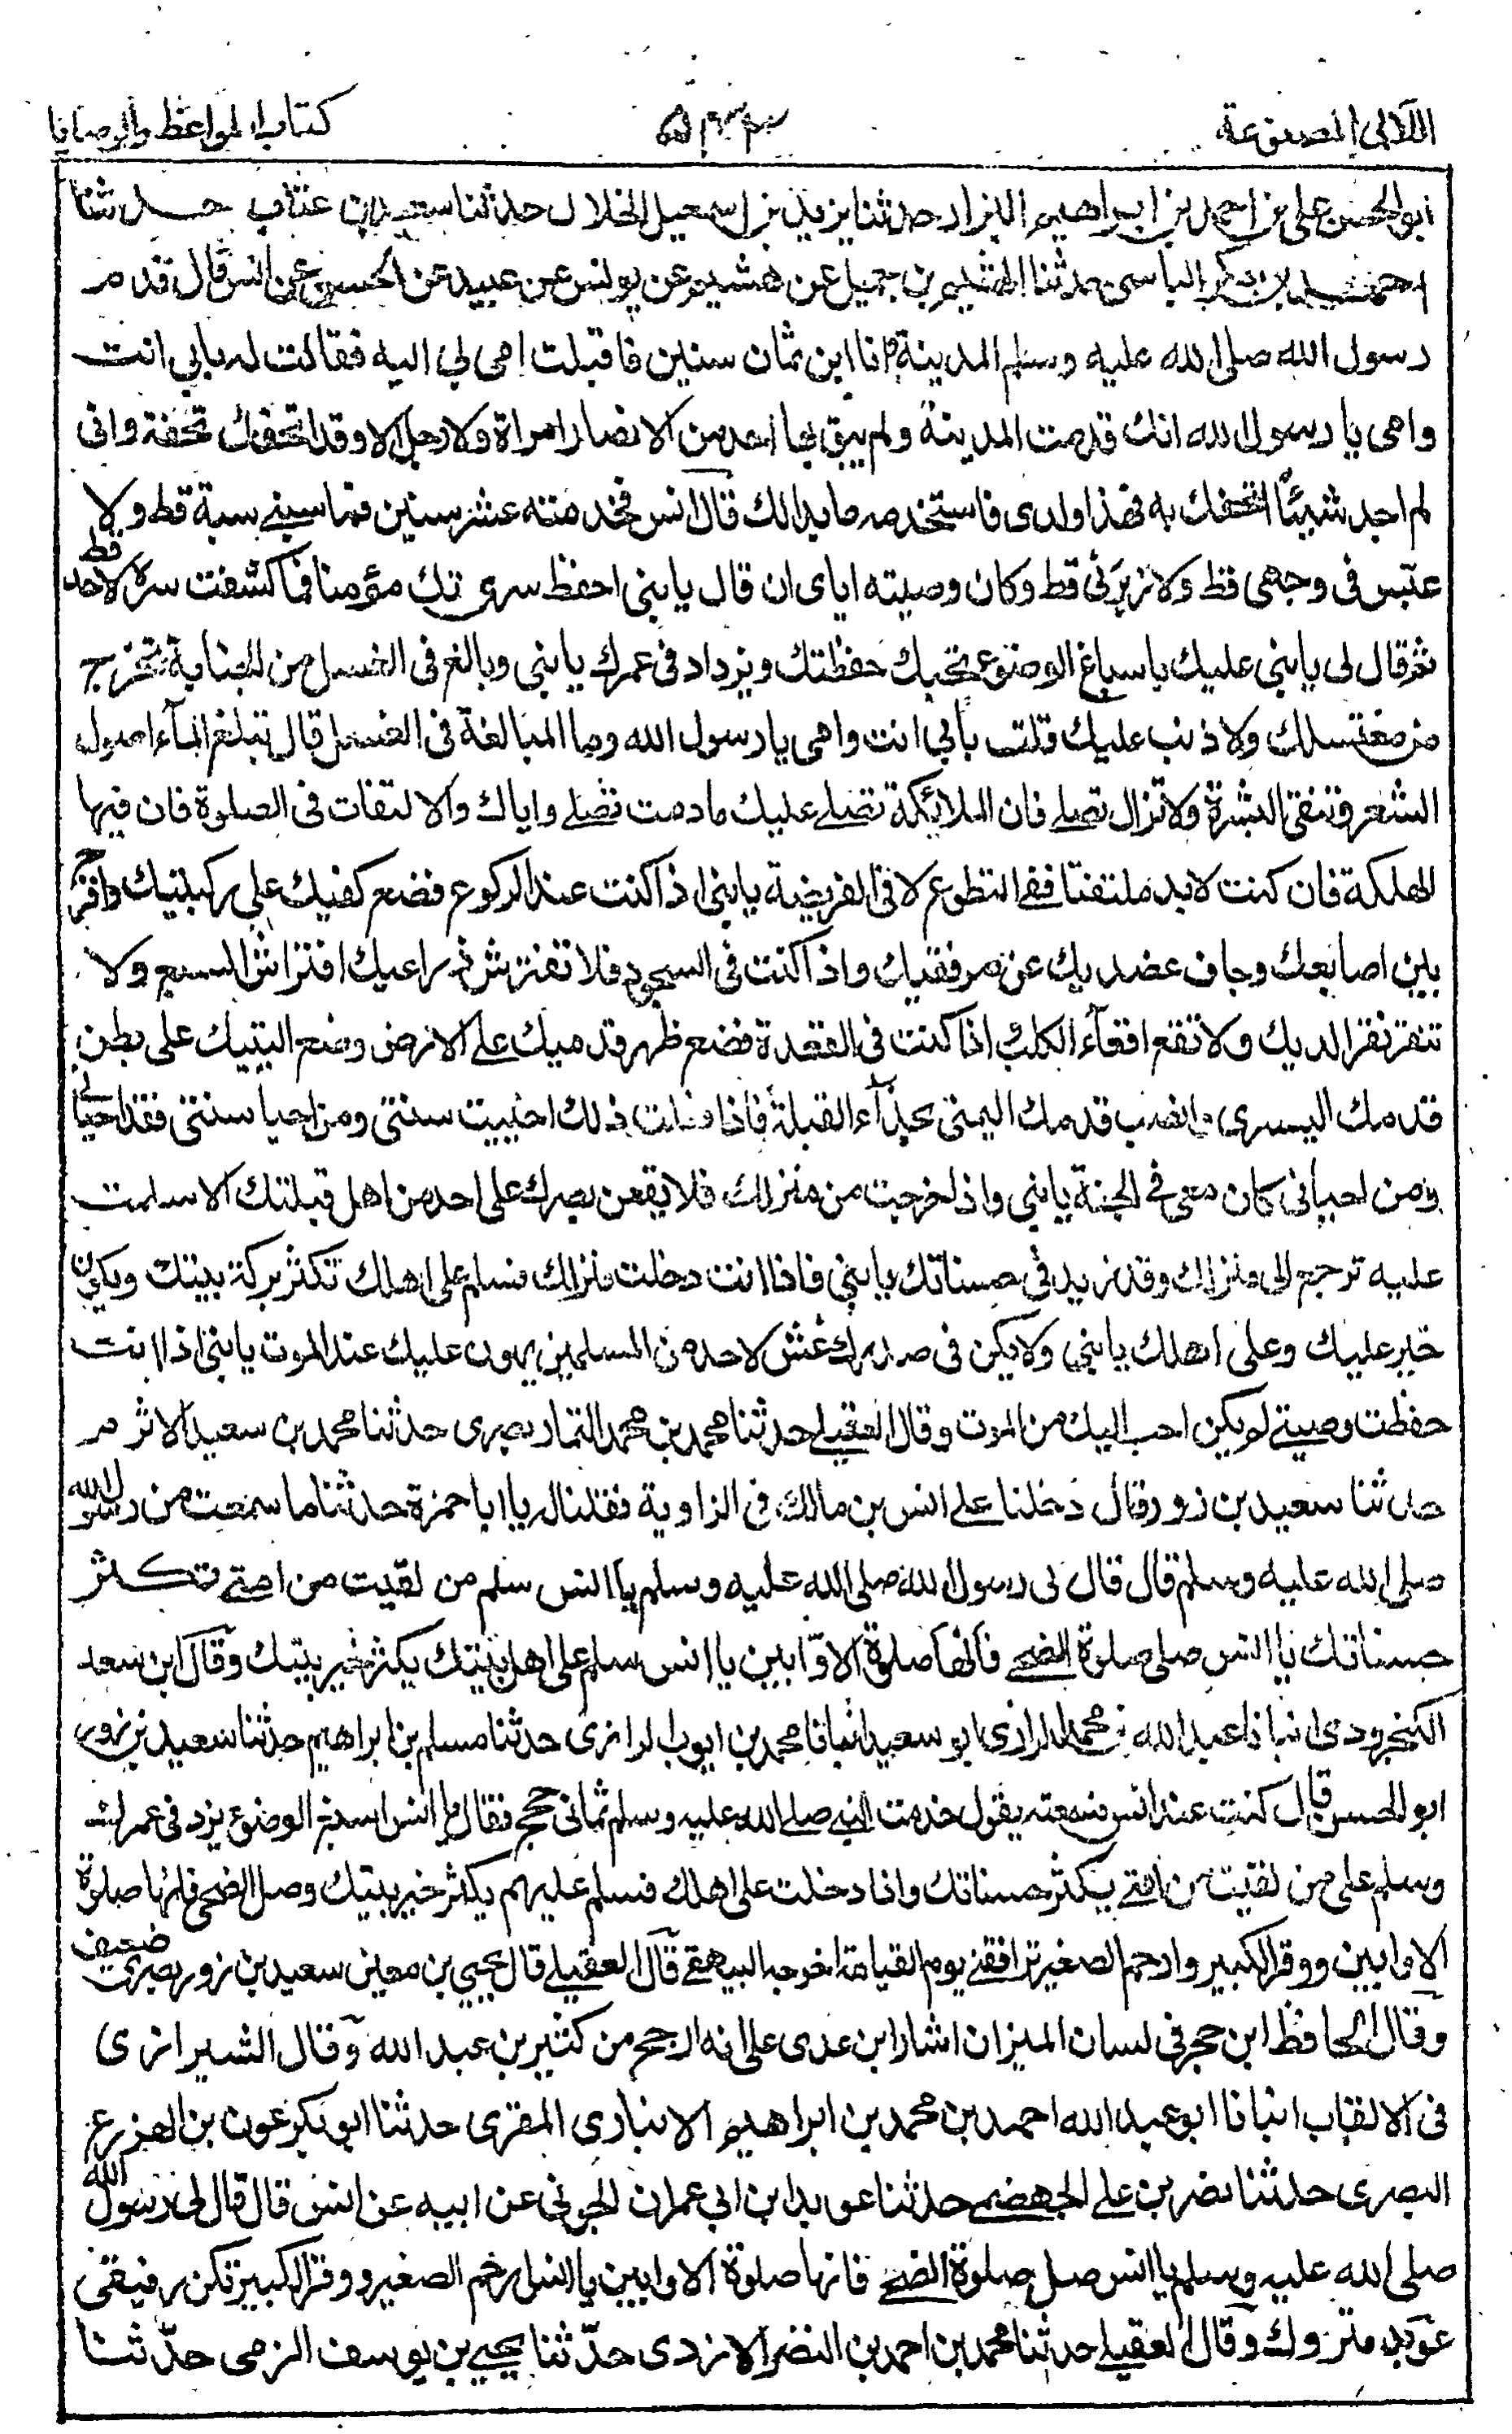 اللآلي المصنوعة
كتاب المواعظ والوصايا
ابو الحسن على بن احمد بن ابراهيم البزار حدثنا يزيد بن اسمعيل الخلال حدثنا سعيد بن عتاب حدثنا
احمد بن بكر البالسى حدثنا الهثيم بن جميل عن هشيم عن يونس عن عبيد عن الحسن عن انس قال قدم
رسول الله صلى الله عليه وسلم المدينة وانا ابن ثمان سنين فاقبلت امى لي اليه فقالت له بابي انت
وامى يا رسول الله انك قدمت المدينة ولم يبق بها احد من الانصار امراة ولا رجل الا وقد اتحفك تحفة وانى
لم اجد شيئًا اتحفك به فهذا ولدى فاستخدمه ما بدا لك قال انس فخدمته عشر سنين فما سبنى سبة قط ولا
عبّس فى وجهى قط ولا زبرنى قط وكان وصيته اياى ان قال يا بنى احفظ سرى تك مؤمنا فما كشفت سره لاحد قط
ثم قال لى يا بنى عليك باسباغ الوضوء تحبك حفظتك ويزداد فى عمرك يا بنى وبالغ فى الغسل من الجنابة تخرج
من مغتسلك ولا ذنب عليك قلت بأبي انت وامى يا رسول الله وما المبالغة فى الغسل قال تبلغ الماء اصول
الشعر وتنقى البشرة ولا تزال تصلى فان الملائكة تصلى عليك ما دمت تصلى واياك والالتفات فى الصلوة فان فيها
الهلكة فان كنت لابد ملتفتا ففى التطوع لا فى الفريضة يا بنى اذا كنت عند الركوع فضع كفيك على ركبتيك وافرج
بين اصابعك وجاف عضديك عن مرفقيك واذا كنت فى السجود فلا تفترش ذراعيك افتراش السبع ولا
تنقر نقر الديك ولا تقع اقعآء الكلب اذا كنت فى القعدة فضع ظهر قدميك على الارض وضع اليتيك على بطن
قدمك اليسرى وانصب قدمك اليمنى بحذآء القبلة فاذا فعلت ذلك احييت سنتى ومن احيا سنتى فقد احيانى
ومن احيانى كان معى فى الجنة يا بنى واذا خرجت من منزلك فلا يقعن بصرك على احد من اهل قبلتك الا سلمت
عليه ترجع الى منزلك وقد زيد فى حسناتك يا بنى فاذا انت دخلت منزلك فسلم على اهلك تكثر بركة بيتك ويكون
خير عليك وعلى اهلك يا بني ولا يكن فى صدرك غش لاحد من المسلمين يهون عليك عند الموت يا بنى اذا انت
حفظت وصيتى لم يكن احب اليك من الموت وقال العقيلى حدثنا محمد بن محمد التمار بصرى حدثنا محمد بن سعيد الاثرم
حدثنا سعيد بن زور قال دخلنا على انس بن مالك فى الزاوية فقلنا له يا ابا حمزة حدثنا ما سمعت من رسول الله
صلى الله عليه وسلم قال قال لى رسول الله صلى الله عليه وسلم يا انس سلم من لقيت من امتى تكثر
حسناتك يا انس صلى صلوة الضحى فانها صلوة الاوّابين يا انس سلم على اهل بيتك يكثر خير بيتك وقال ابن سعد
الكنجرودى انبانا عبد الله بن محمد الرازى ابو سعيد انبانا محمد بن ايوب الرازى حدثنا مسلم بن ابراهيم حدثنا سعيد بن زور
ابو الحسن قال كنت عند انس فسمعته يقول خدمت النبى صلى الله عليه وسلم ثمانى حجج فقال يا انس اسبغ الوضوء يزد فى عمرك
وسلم على من لقيت من امتى يكثر حسناتك واذا دخلت على اهلك فسلم عليهم يكثر خير بيتك وصل الضحى فانها صلوة
الاوابين ووقر الكبير وارحم الصغير ترافقنى يوم القيامة اخرجه البيهقى قال العقيلى قال يحيي بن معين سعيد بن زور بصرى ضعيف
وقال الحافظ ابن حجر فى لسان الميزان اشار ابن عدى على انه ارجح من كثير بن عبد الله وقال الشيرازى
فى الالقاب انبانا ابو عبد الله احمد بن محمد بن ابراهيم الانبارى المقرى حدثنا ابو بكر عون بن المزرع
البصرى حدثنا نصر بن على الجهضمى حدثنا عوبد ابن ابي عمران الجونى عن ابيه عن انس قال قال لى رسول الله
صلى الله عليه وسلم يا انس صل صلوة الضحى فانها صلوة الاوابين يا انس ارحم الصغير ووقر الكبير تكن رفيقى
عوبد متروك وقال العقيلى حدثنا محمد بن احمد بن النضر الازدى حدّثنا يحيى بن يوسف الزمى حدّثنا